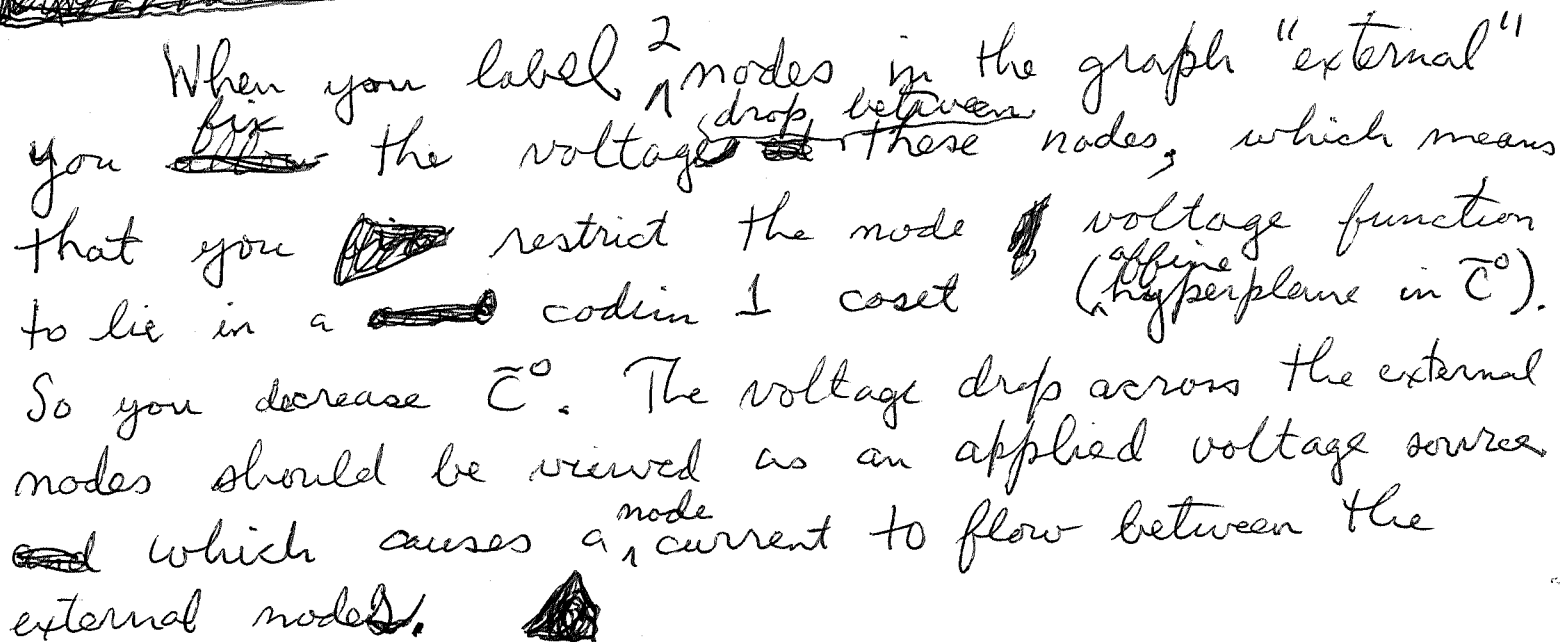 When you label 2 nodes in the graph "external"
you fix the voltage drop between these nodes, which means
that you restrict the node voltage function
to lie in a codim 1 coset (affine hyperplane in C̃⁰).
So you decrease C̃⁰. The voltage drop across the external
nodes should be viewed as an applied voltage source
which causes a node current to flow between the
external nodes.